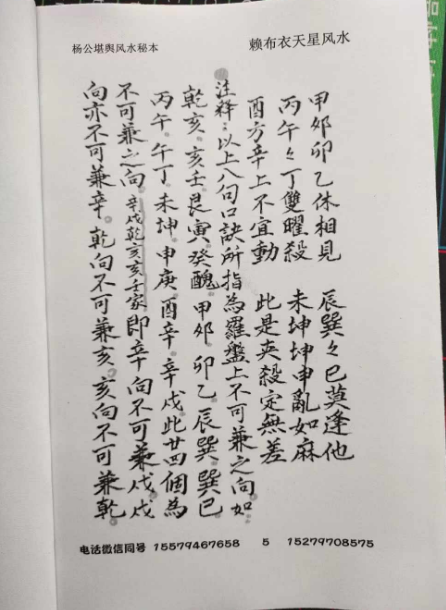 杨公堪舆风水秘本
赖布衣天星风水
甲夘卯乙休相見 辰巽々巳莫逢他
丙午々丁雙曜殺 未坤坤申亂如麻
酉方辛上不宜動 此是夾殺定無差
注释：以上八句口訣所指為羅盤上不可兼之向如
乾亥。亥壬。艮寅癸醜。甲夘。卯乙。辰巽。巽巳
丙午。午丁。未坤。申庚。酉辛。辛戌。此廿四個為
不可兼之向。辛戌乾亥亥壬家即辛向不可兼戌戌
向亦不可兼辛。乾向不可兼亥。亥向不可兼乾。
电话微信同号 15579467658 5 15279708575